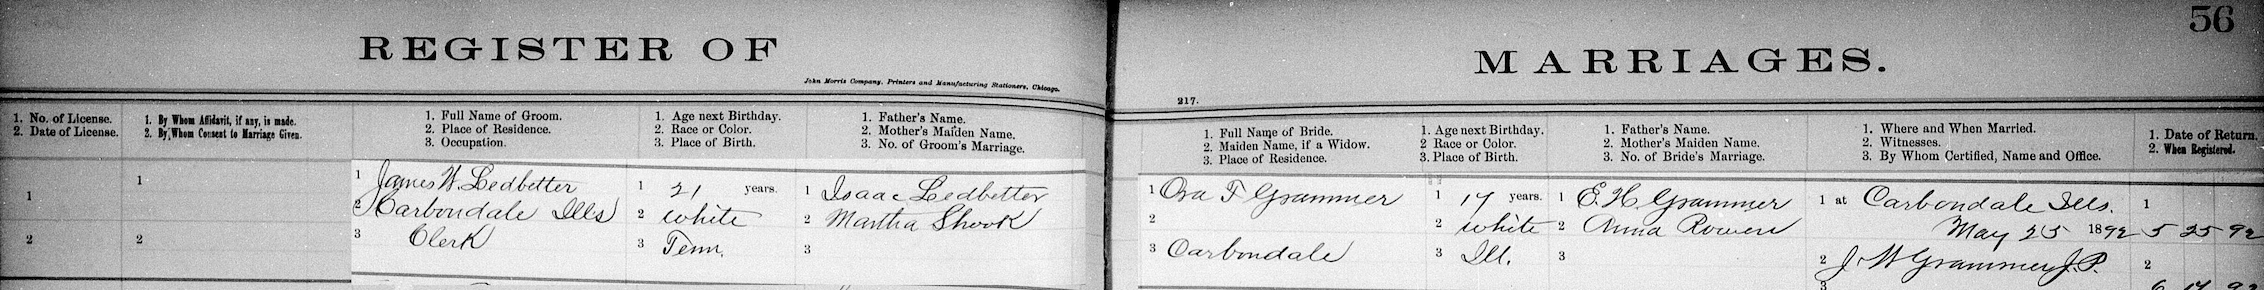 56
REGISTER OF MARRIAGES.
John Morris Company, Printers and Manufacturing Stationers, Chicago.
217.
1. No. of License.
2. Date of License.
1. By Whom Affidavit, if any, is made.
2. By Whom Consent to Marriage Given.
1. Full Name of Groom.
2. Place of Residence.
3. Occupation.
1. Age next Birthday.
2. Race or Color.
3. Place of Birth.
1. Father's Name.
2. Mother's Maiden Name.
3. No. of Groom's Marriage.
1. Full Name of Bride.
2. Maiden Name, if a Widow.
3. Place of Residence.
1. Age next Birthday.
2 Race or Color.
3. Place of Birth.
1. Father's Name.
2. Mother's Maiden Name.
3. No. of Bride's Marriage.
1. Where and When Married.
2. Witnesses.
3. By Whom Certified, Name and Office.
1. Date of Return.
2. When Registered.
1
2
1
2
1 James W. Ledbetter
2 Carbondale Ills
3 Clerk
1 21 years.
2 white
3 Tenn.
1 Isaac Ledbetter
2 Martha Shook
3
1 Ora F Grammer
2
3 Carbondale
1 17 years.
2 white
3 Ill.
1 E. H. Grammer
2 Anna Rowen
3
1 at Carbondale Ills.
May 25 1892
2 J W Grammer J.P.
3
1
5 25 92
2
6 17 92